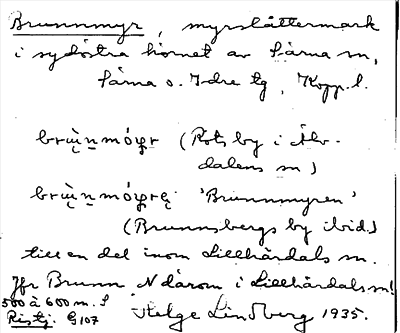 Brunnmyr, myrslåttermark
i sydöstra hörnet av Särna sn,
Särna o. Idre tg, Kopp. l.
brùn̲mó𝑦r (Rots by i Älv-
dalens sn)
'Brunnmyren'
(Brunnsbergs by ibid.)
till en del inom Lillhärdals sn.
Jfr Brunn N därom i Lillhärdals sn!
500 à 600 m. S
Ristj. G107
Helge Lindberg 1935.